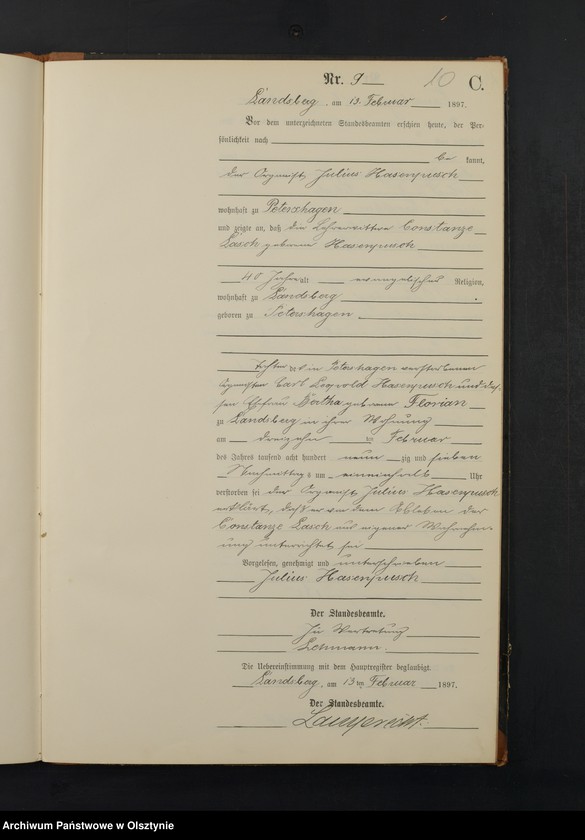 Nr. 9
10
C.
Landsberg, am 13. Februar 1897.
Vor dem unterzeichneten Standesbeamten erschien heute, der Per-
sönlichkeit nach
be kannt,
der Organist Julius Hasenpusch
wohnhaft zu Petershagen
und zeigte an, daß die Lehrerwittwe Constanze
Lasch geborene Hasenpusch
40 Jahre alt evangelischer Religion,
wohnhaft zu Landsberg
geboren zu Petershagen
Tochter des in Petershagen verstorbenen
Organisten Carl Leopold Hasenpusch und des-
sen Ehefrau Bertha geborene Florian
zu Landsberg in ihrer Wohnung
am dreizehn ten Februar
des Jahres tausend acht hundert neun zig und sieben
Nachmittags um eineinhalb Uhr
verstorben sei der Organist Julius Hasenpusch
erklärt, daß er von dem Ableben der
Constanze Lasch aus eigener Wahrnehm-
ung unterrichtet sei
Vorgelesen, genehmigt und unterschrieben
Julius Hasenpusch
Der Standesbeamte.
In Vertretung
Lehmann.
Die Uebereinstimmung mit dem Hauptregister beglaubigt.
Landsberg, am 13ten Februar 1897.
Der Standesbeamte.
Archiwum Państwowe w Olsztynie